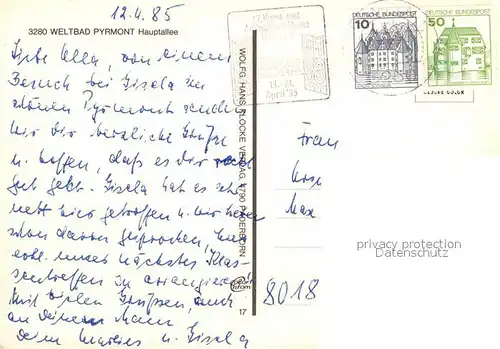 12.4.85
3280 WELTBAD PYRMONT Hauptallee
Liebe Ella, von einem
Besuch bei Gisela im
schönen Pyrmont senden
wir Dir herzliche Grüße
u. hoffen, daß es Dir
gut geht. Gisela hat es sehr
nett hier getroffen u. wir
schon davon gesprochen,
unser nächstes Klas-
sentreffen zu arrangieren!
Mit vielen Grüßen, auch
an Deinen Mann
u. Gisela
WOLFG. HANS KLOCKE VERLAG, 4790 PADERBORN
17
April '85
DEUTSCHE BUNDESPOST
10
DEUTSCHE BUNDESPOST
50
Frau
8018
privacy protection
Datenschutz